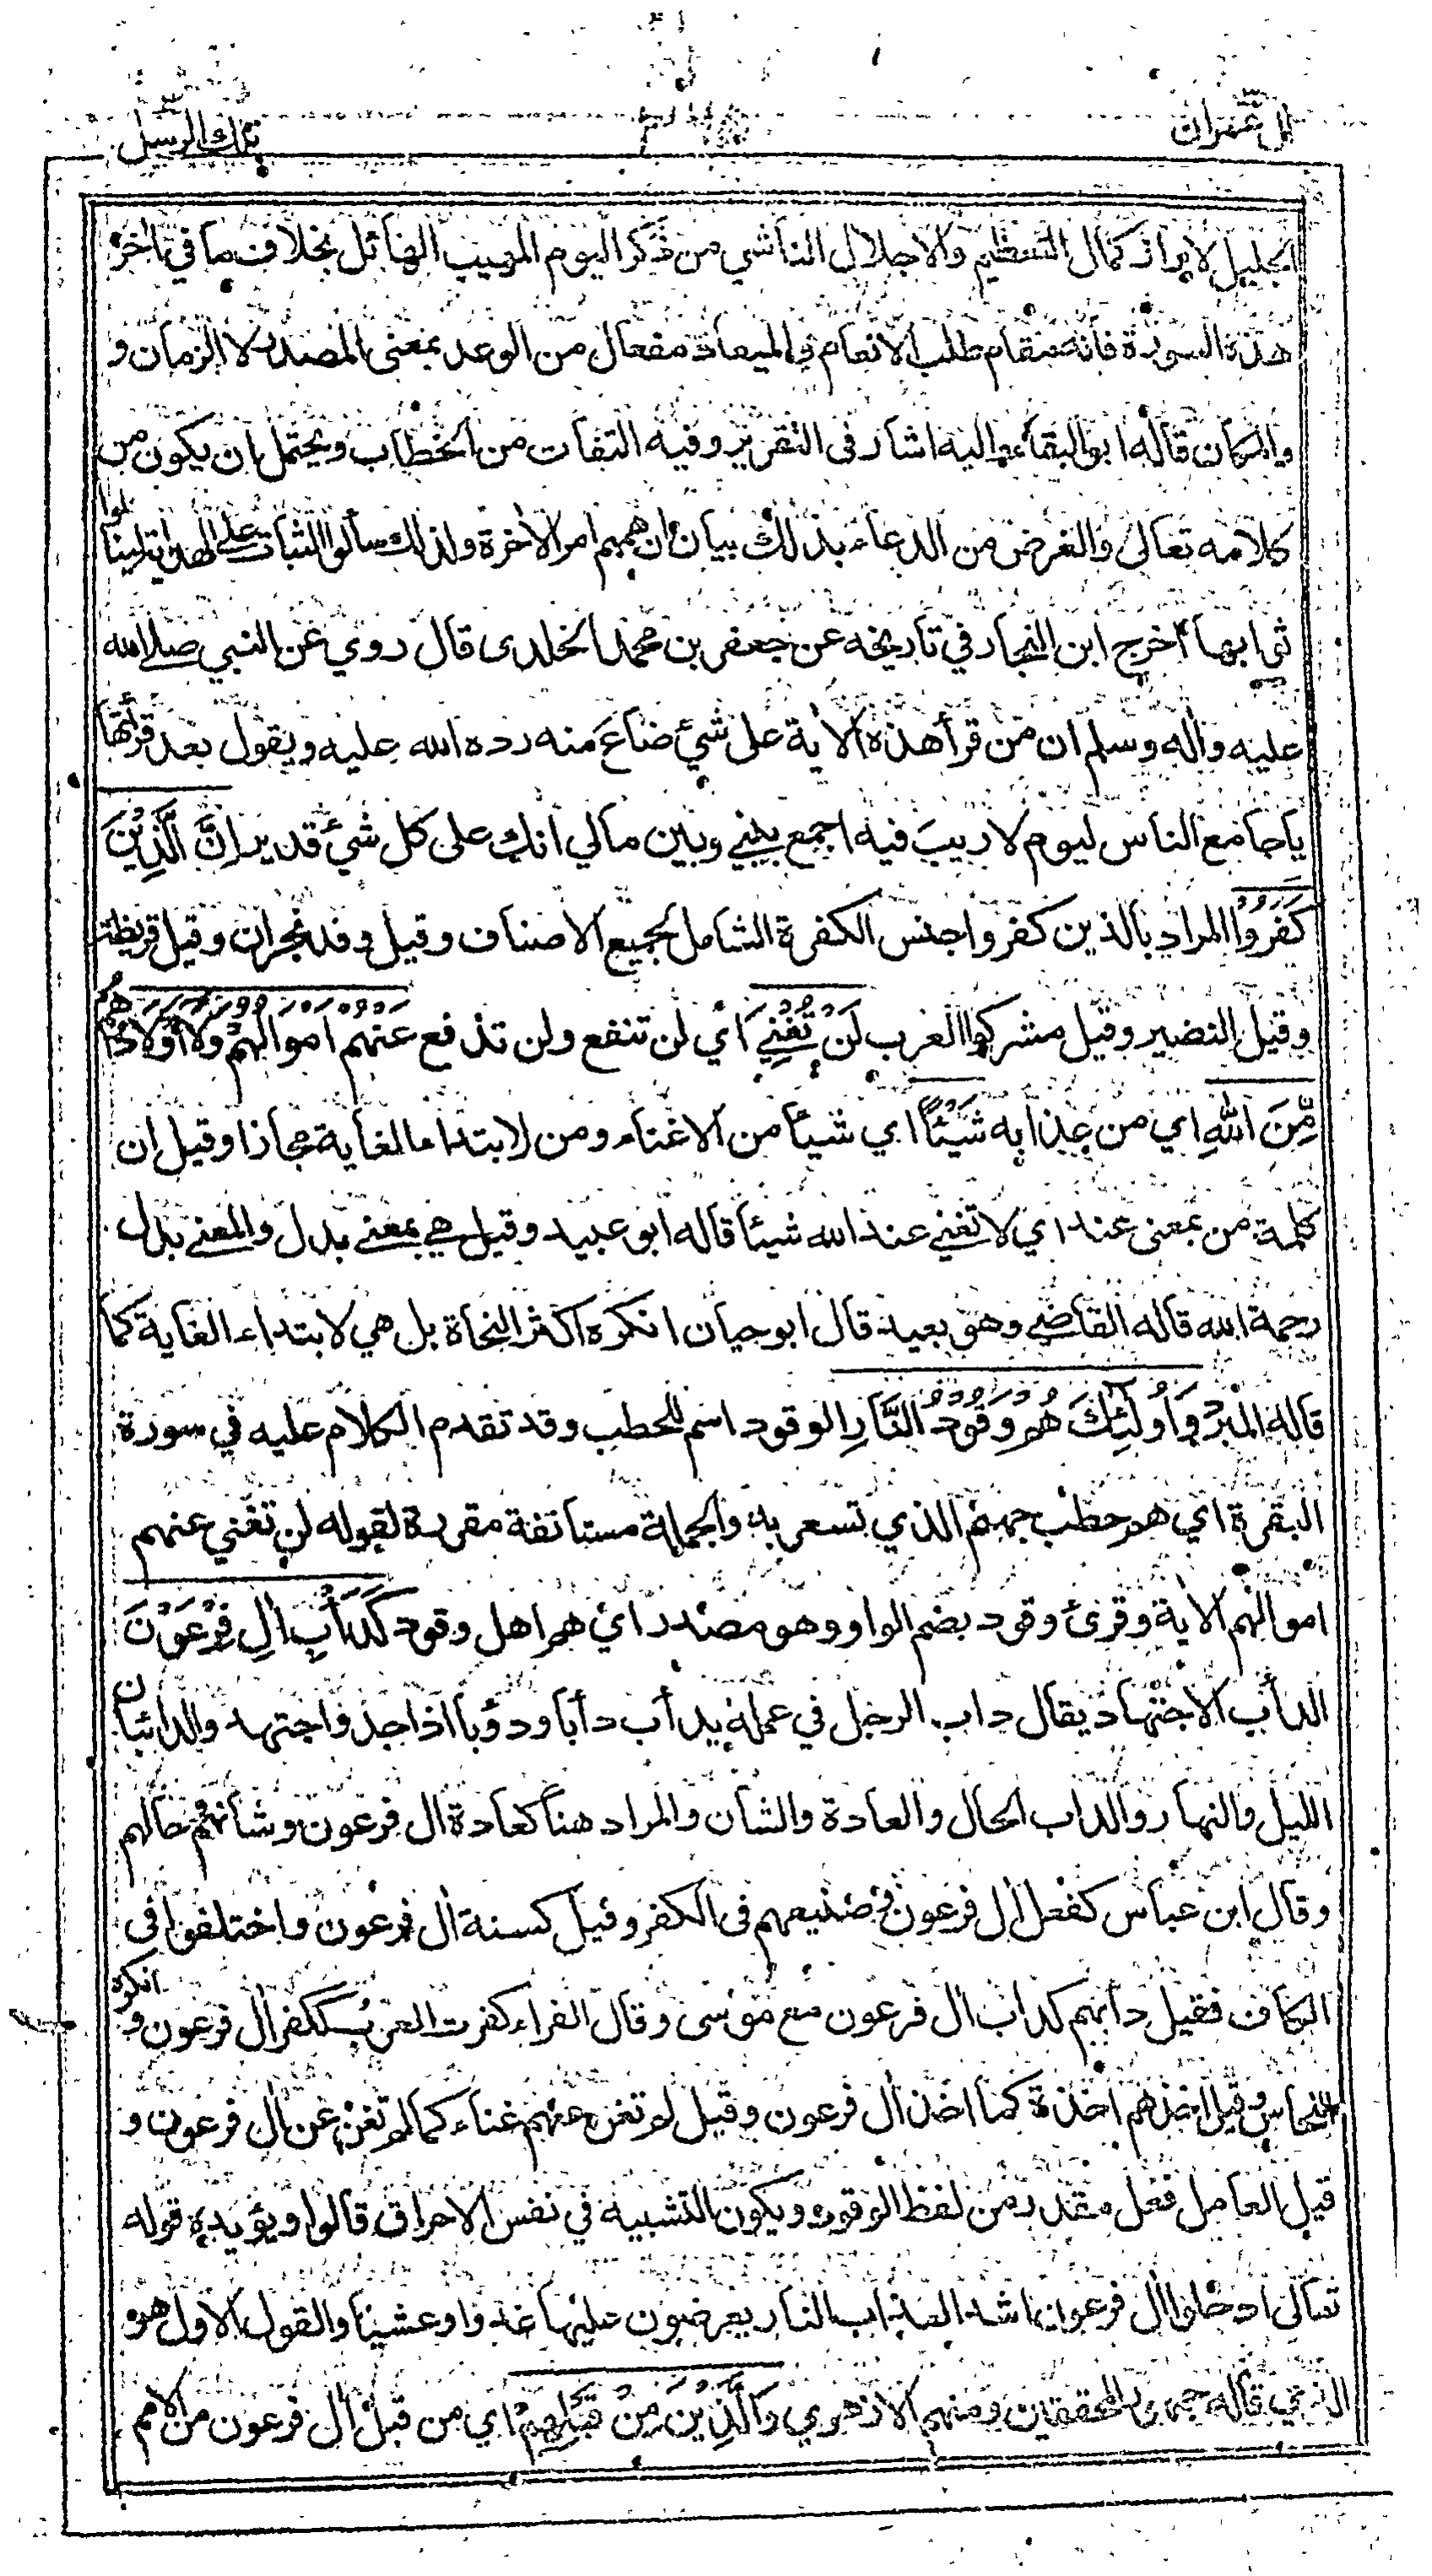 ال عمران
تلك الرسل
الجليل لابراز كمال التعظيم والاجلال الناشي من ذكر اليوم المهيب الهائل بخلاف ما في اخر
هذة السورة فانه مقام طلب الانعام والميعاد مفعال من الوعد بمعنى المصدر لا الزمان و
والمكان قاله ابو البقاء واليه اشار في التقرير وفيه التفات من الخطاب ويحتمل ان يكون من
كلامه تعالى والغرض من الدعاء بذلك بيان ان همهم امر الاخرة ولذلك سألوا الثبات على الهداية لينالوا
ثوابها اخرج ابن النجار في تاريخه عن جعفر بن محمد الخلدى قال روي عن النبي صلى الله
عليه واله وسلم ان من قرأ هذه الاية على شيء ضاع منه رده الله عليه ويقول بعد قرأتها
ياجامع الناس ليوم لا ريب فيه اجمع بيني وبين مالي انك على كل شيء قدير اِنَّ الَّذِيْنَ
كَفَرُوْا المراد بالذين كفروا جنس الكفرة الشامل لجميع الاصناف وقيل وفد نجران وقيل قريظة
وقيل النضير وقيل مشركوا العرب لَنْ تُغْنِيَ اي لن تنفع ولن تدفع عَنْهُمْ اَمْوَالُهُمْ وَلَا اَوْلَادُهُمْ
مِّنَ اللّٰهِ اي من عذابه شَيْئًا اي شيئا من الاغناء ومن لابتداء الغاية مجازا وقيل ان
كلمة من بمعنى عند اي لا تغني عند الله شيئا قاله ابو عبيد وقيل هي بمعنى بدل والمعنى بدل
رحمة الله قاله القاضي وهو بعيد قال ابو حيان انكره اكثر النحاة بل هي لابتداء الغاية كما
قاله المبرد وَاُولٰئِكَ هُمْ وَقُوْدُ النَّارِ الوقود اسم للحطب وقد تقدم الكلام عليه في سورة
البقرة اي هم حطب جهنم الذي تسعر به والجملة مستانفة مقررة لقوله لن تغني عنهم
اموالهم الاية وقرئ وقود بضم الواو وهو مصدر اي هم اهل وقود كَدَاْبِ اٰلِ فِرْعَوْنَ
الدأب الاجتهاد يقال داب الرجل في عمله يدأب دأبا ودؤبا اذا جد واجتهد والدائبان
الليل والنهار والداب الحال والعادة والشان والمراد هنا كعادة ال فرعون وشأنهم حالهم
وقال ابن عباس كفعل اٰل فرعون وصنيعهم في الكفر وقيل كسنة اٰل فرعون واختلفوا في
الكاف فقيل دأبهم كداب ال فرعون مع موسى وقال الفراء كفرت العرب ككفر اٰل فرعون وانكره
النحاس وقيل اخذهم اخذة كما اخذ اٰل فرعون وقيل لم تغن عنهم غناء كما لم تغن عن اٰل فرعون و
قيل العامل فعل مقدر من لفظ الوقود ويكون التشبيه في نفس الاحراق قالوا ويؤيده قوله
تعالى ادخلوا اٰل فرعون اشد العذاب النار يعرضون عليها غدوا وعشيا والقول الاول هو
الذي قاله جمهور المحققين ومنهم الازهري وَالَّذِيْنَ مِنْ قَبْلِهِمْ اي من قبل اٰل فرعون من الامم